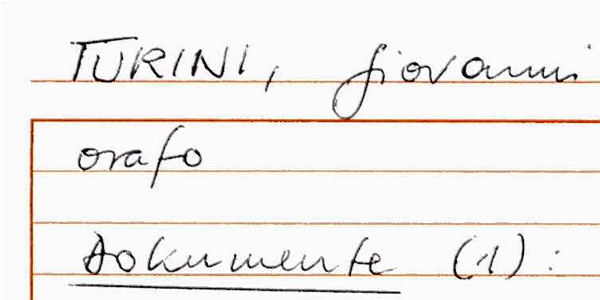 TURINI, Giovanni
orafo
Dokumente (1):